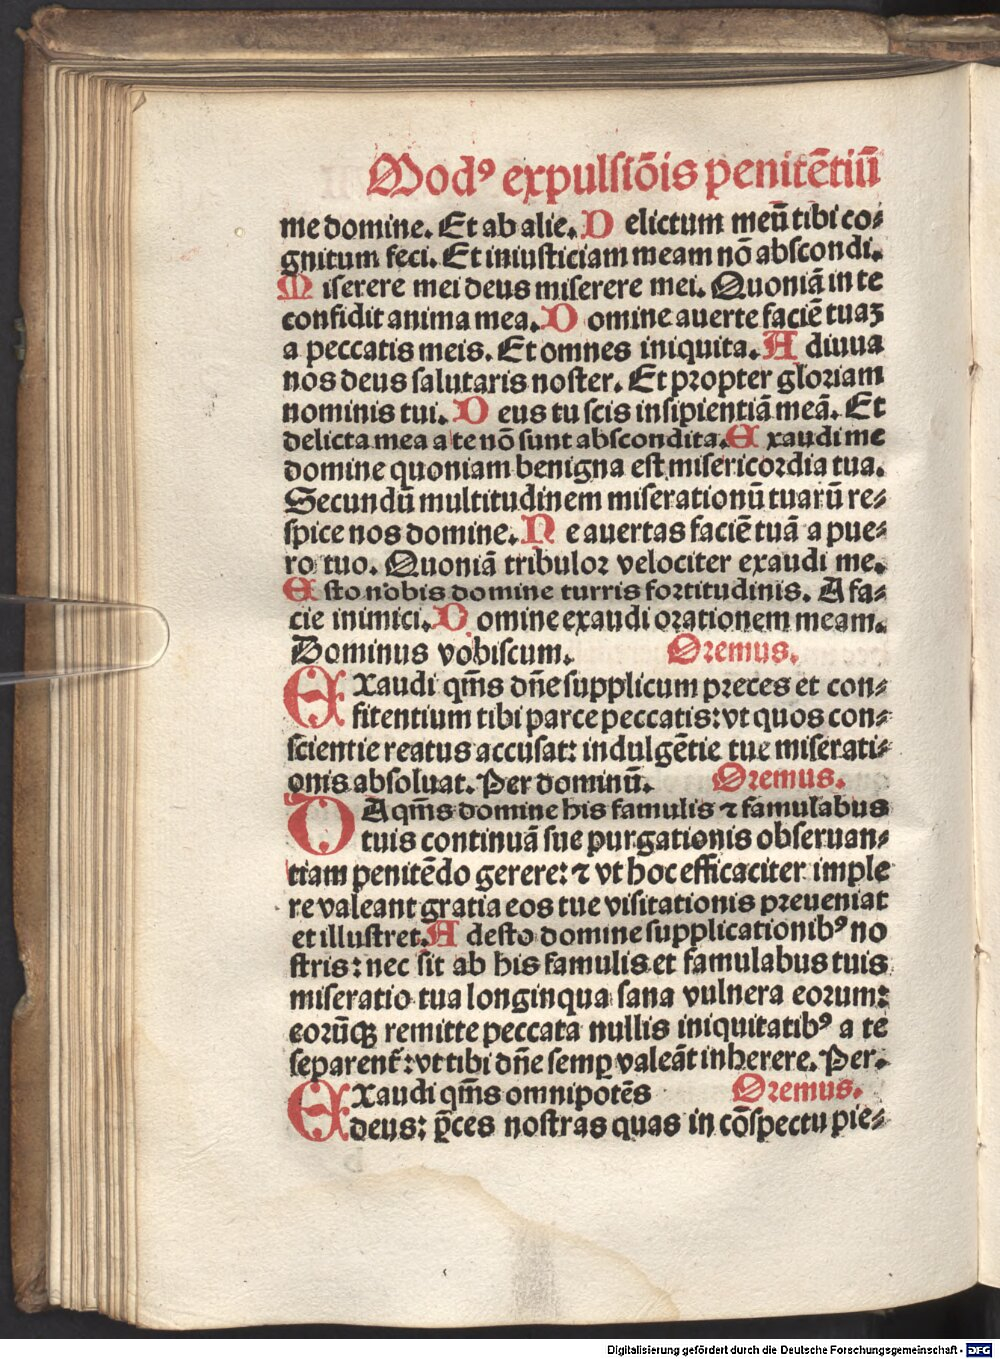 Modꝰ expulsiōis penitētiū
me domine. Et ab alie. D elictum meū tibi co⸗
gnitum feci. Et iniusticiam meam nō abscondi.
M iserere mei deus miserere mei. Quoniā in te
confidit anima mea. D omine auerte faciē tuaꝫ
a peccatis meis. Et omnes iniquita. A diuua
nos deus salutaris noster. Et propter gloriam
nominis tui. D eus tu scis insipientiā meā. Et
delicta mea a te nō sunt abscondita. E xaudi me
domine quoniam benigna est misericordia tua.
Secundū multitudinem miserationū tuarū re⸗
spice nos domine. N e auertas faciē tuā a pue⸗
ro tuo. Quoniā tribulor velociter exaudi me.
E sto nobis domine turris fortitudinis. A fa⸗
cie inimici. D omine exaudi orationem meam.
Dominus vobiscum. Oremus.
EXaudi qm̄s dn̄e supplicum preces et con⸗
fitentium tibi parce peccatis: vt quos con⸗
scientie reatus accusat: indulgētie tue miserati⸗
onis absoluat. Per dominū. Oremus.
DA qm̄s domine his famulis ⁊ famulabus
tuis continuā sue purgationis obseruan⸗
tiam penitēdo gerere: ⁊ vt hoc efficaciter imple
re valeant gratia eos tue visitationis preueniat
et illustret. A desto domine supplicationibꝰ no
stris: nec sit ab his famulis et famulabus tuis
miseratio tua longinqua sana vulnera eorum:
eorūꝙ remitte peccata nullis iniquitatibꝰ a te
separent᷑: vt tibi dn̄e semꝑ valeāt inherere. Per.
EXaudi qm̄s omnipotēs Oremus.
deus: p̄ces nostras quas in cōspectu pie⸗
Digitalisierung gefördert durch die Deutsche Forschungsgemeinschaft - DFG